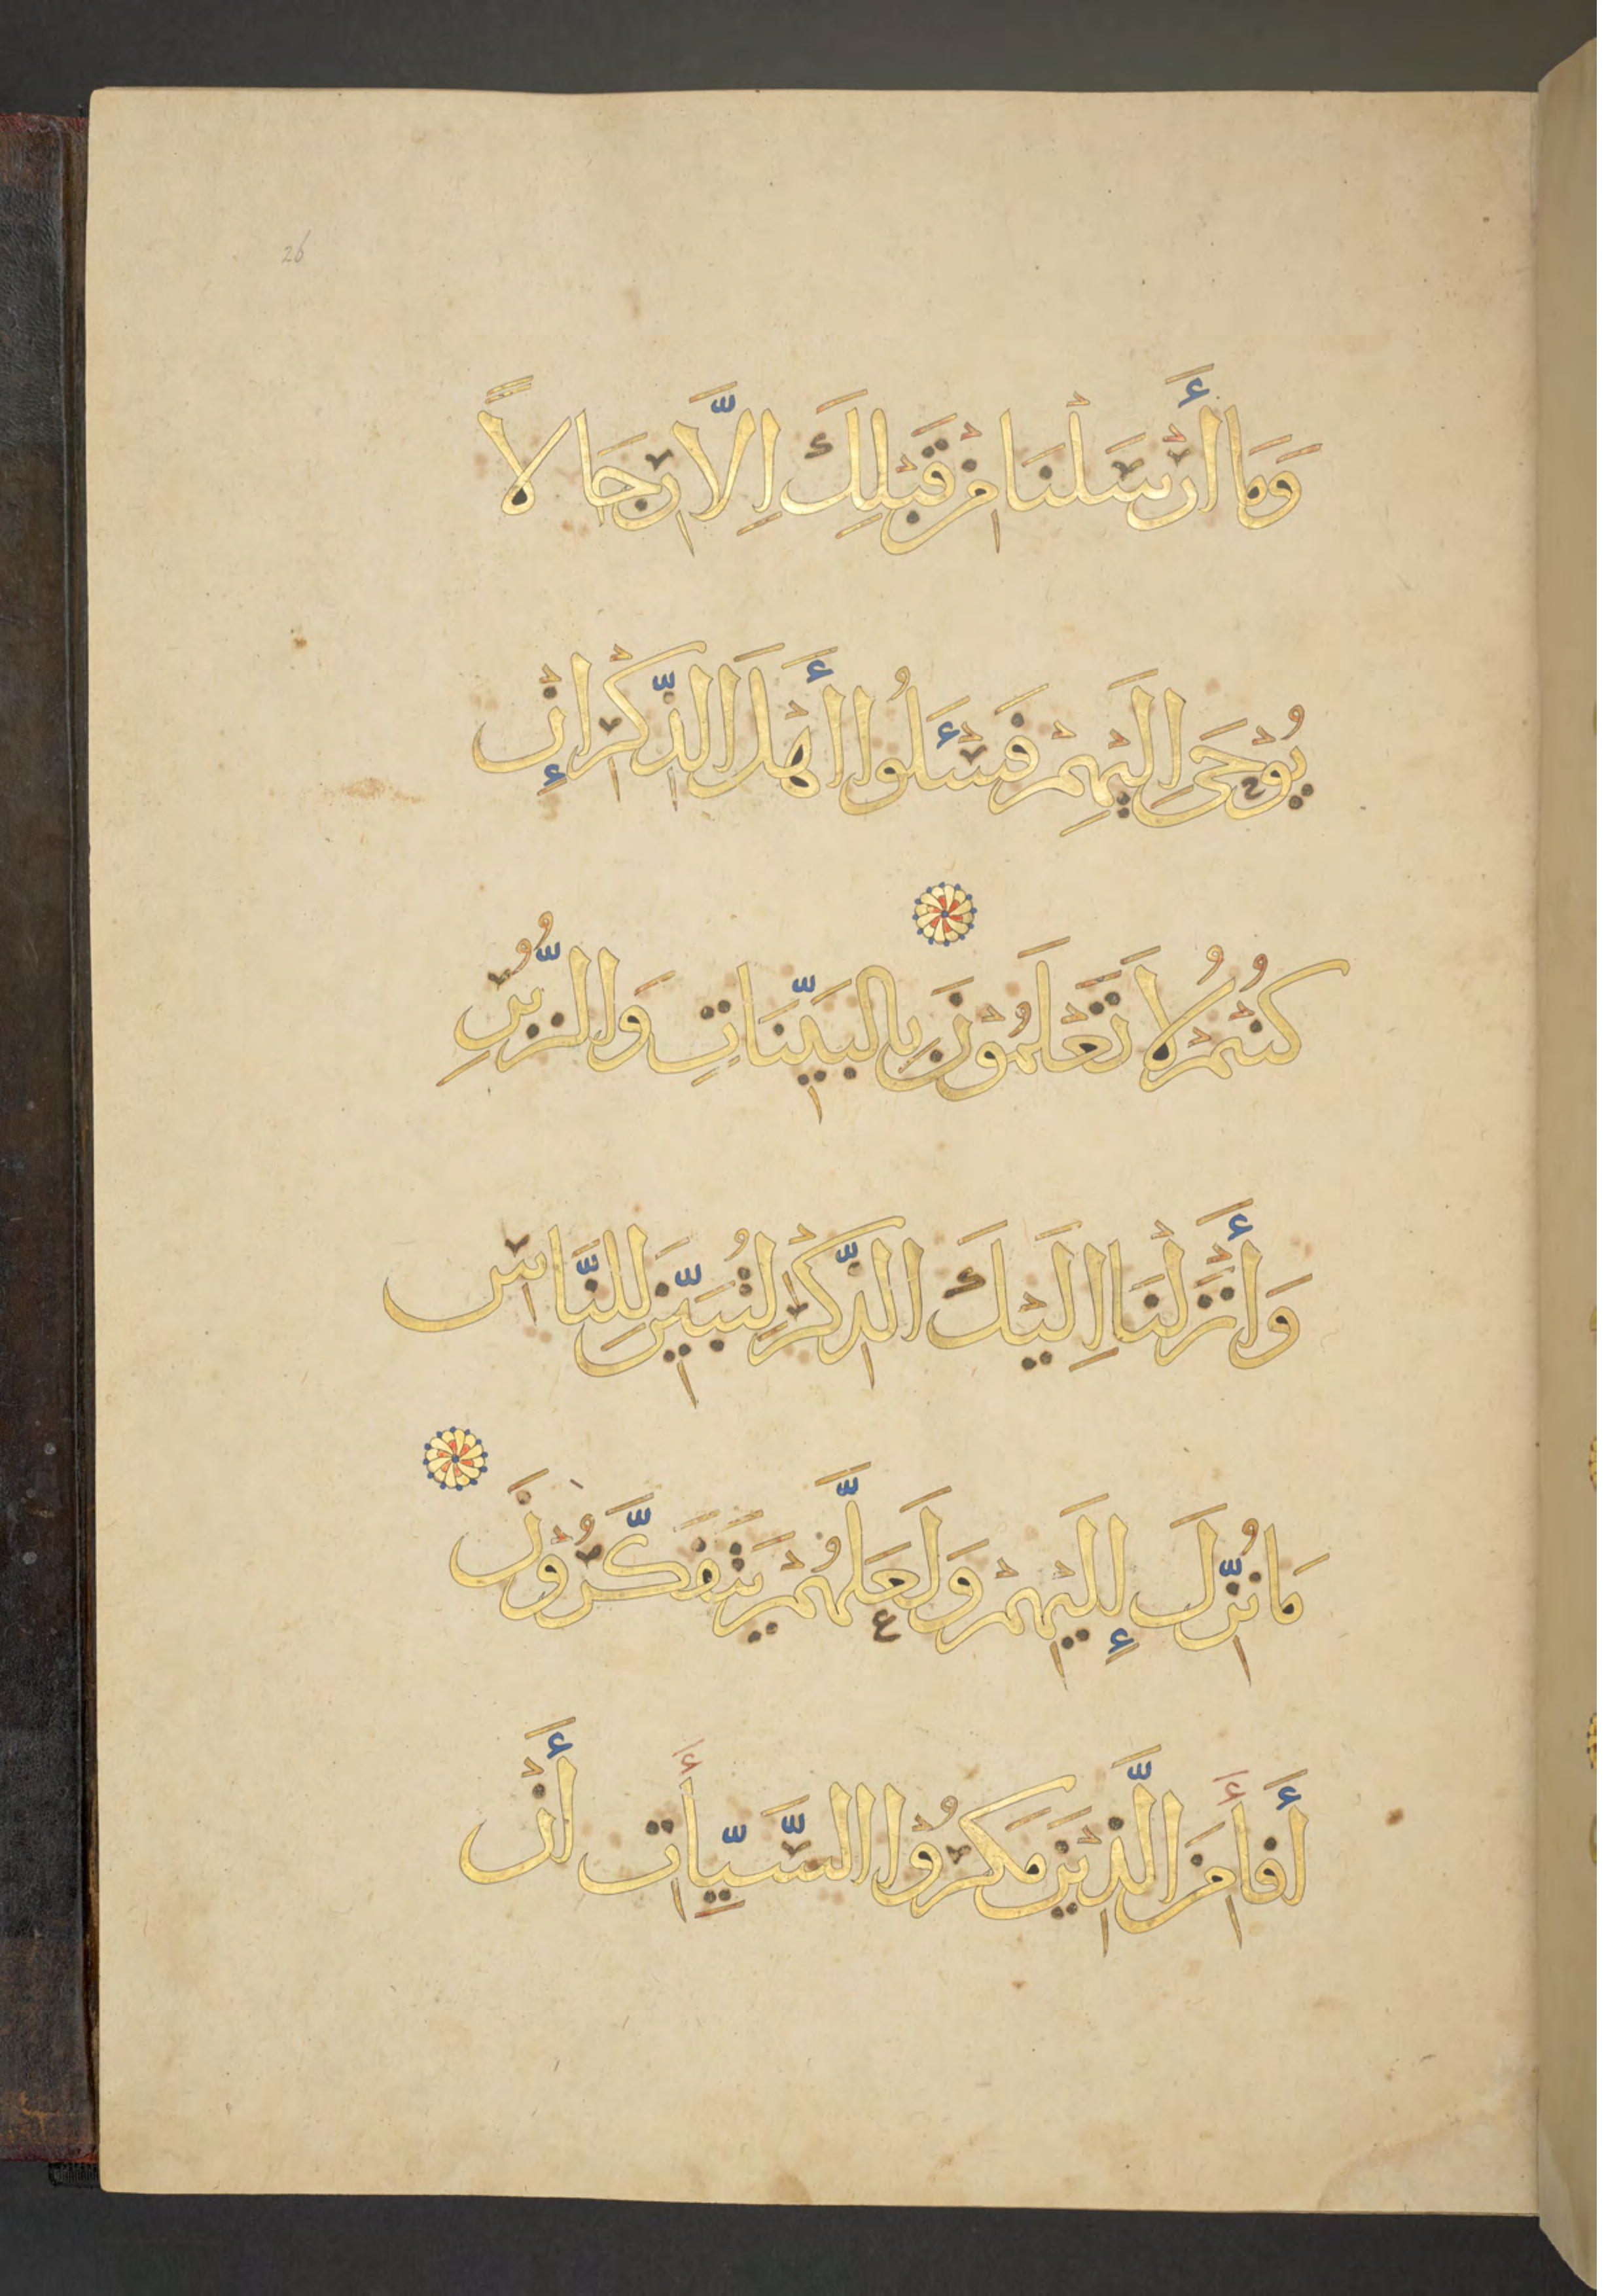 26
وَمَا أَرْسَلْنَا مِنْ قَبْلِكَ اِلَّا رِجَالاً
يُوْحَى اِلَيْهِمْ فَسْئَلُوا أَهْلَ الذِّكْرِ إِنْ
كُنْتُمْ لَا تَعْلَمُوْنَ بِالبَيِّنَاتِ وَالزُّبُرِ
وَأَنْزَلْنَا اِلَيْكَ الذِّكْرَ لِتُبَيِّنَ لِلنَّاسِ
مَا نُزِّلَ إِلَيْهِمْ وَلَعَلَّهُمْ يَتَفَكَّرُوْنَ
أَفَأَمِنَ الَّذِيْنَ مَكَرُوْا السَّيِّأَاتِ أَنْ